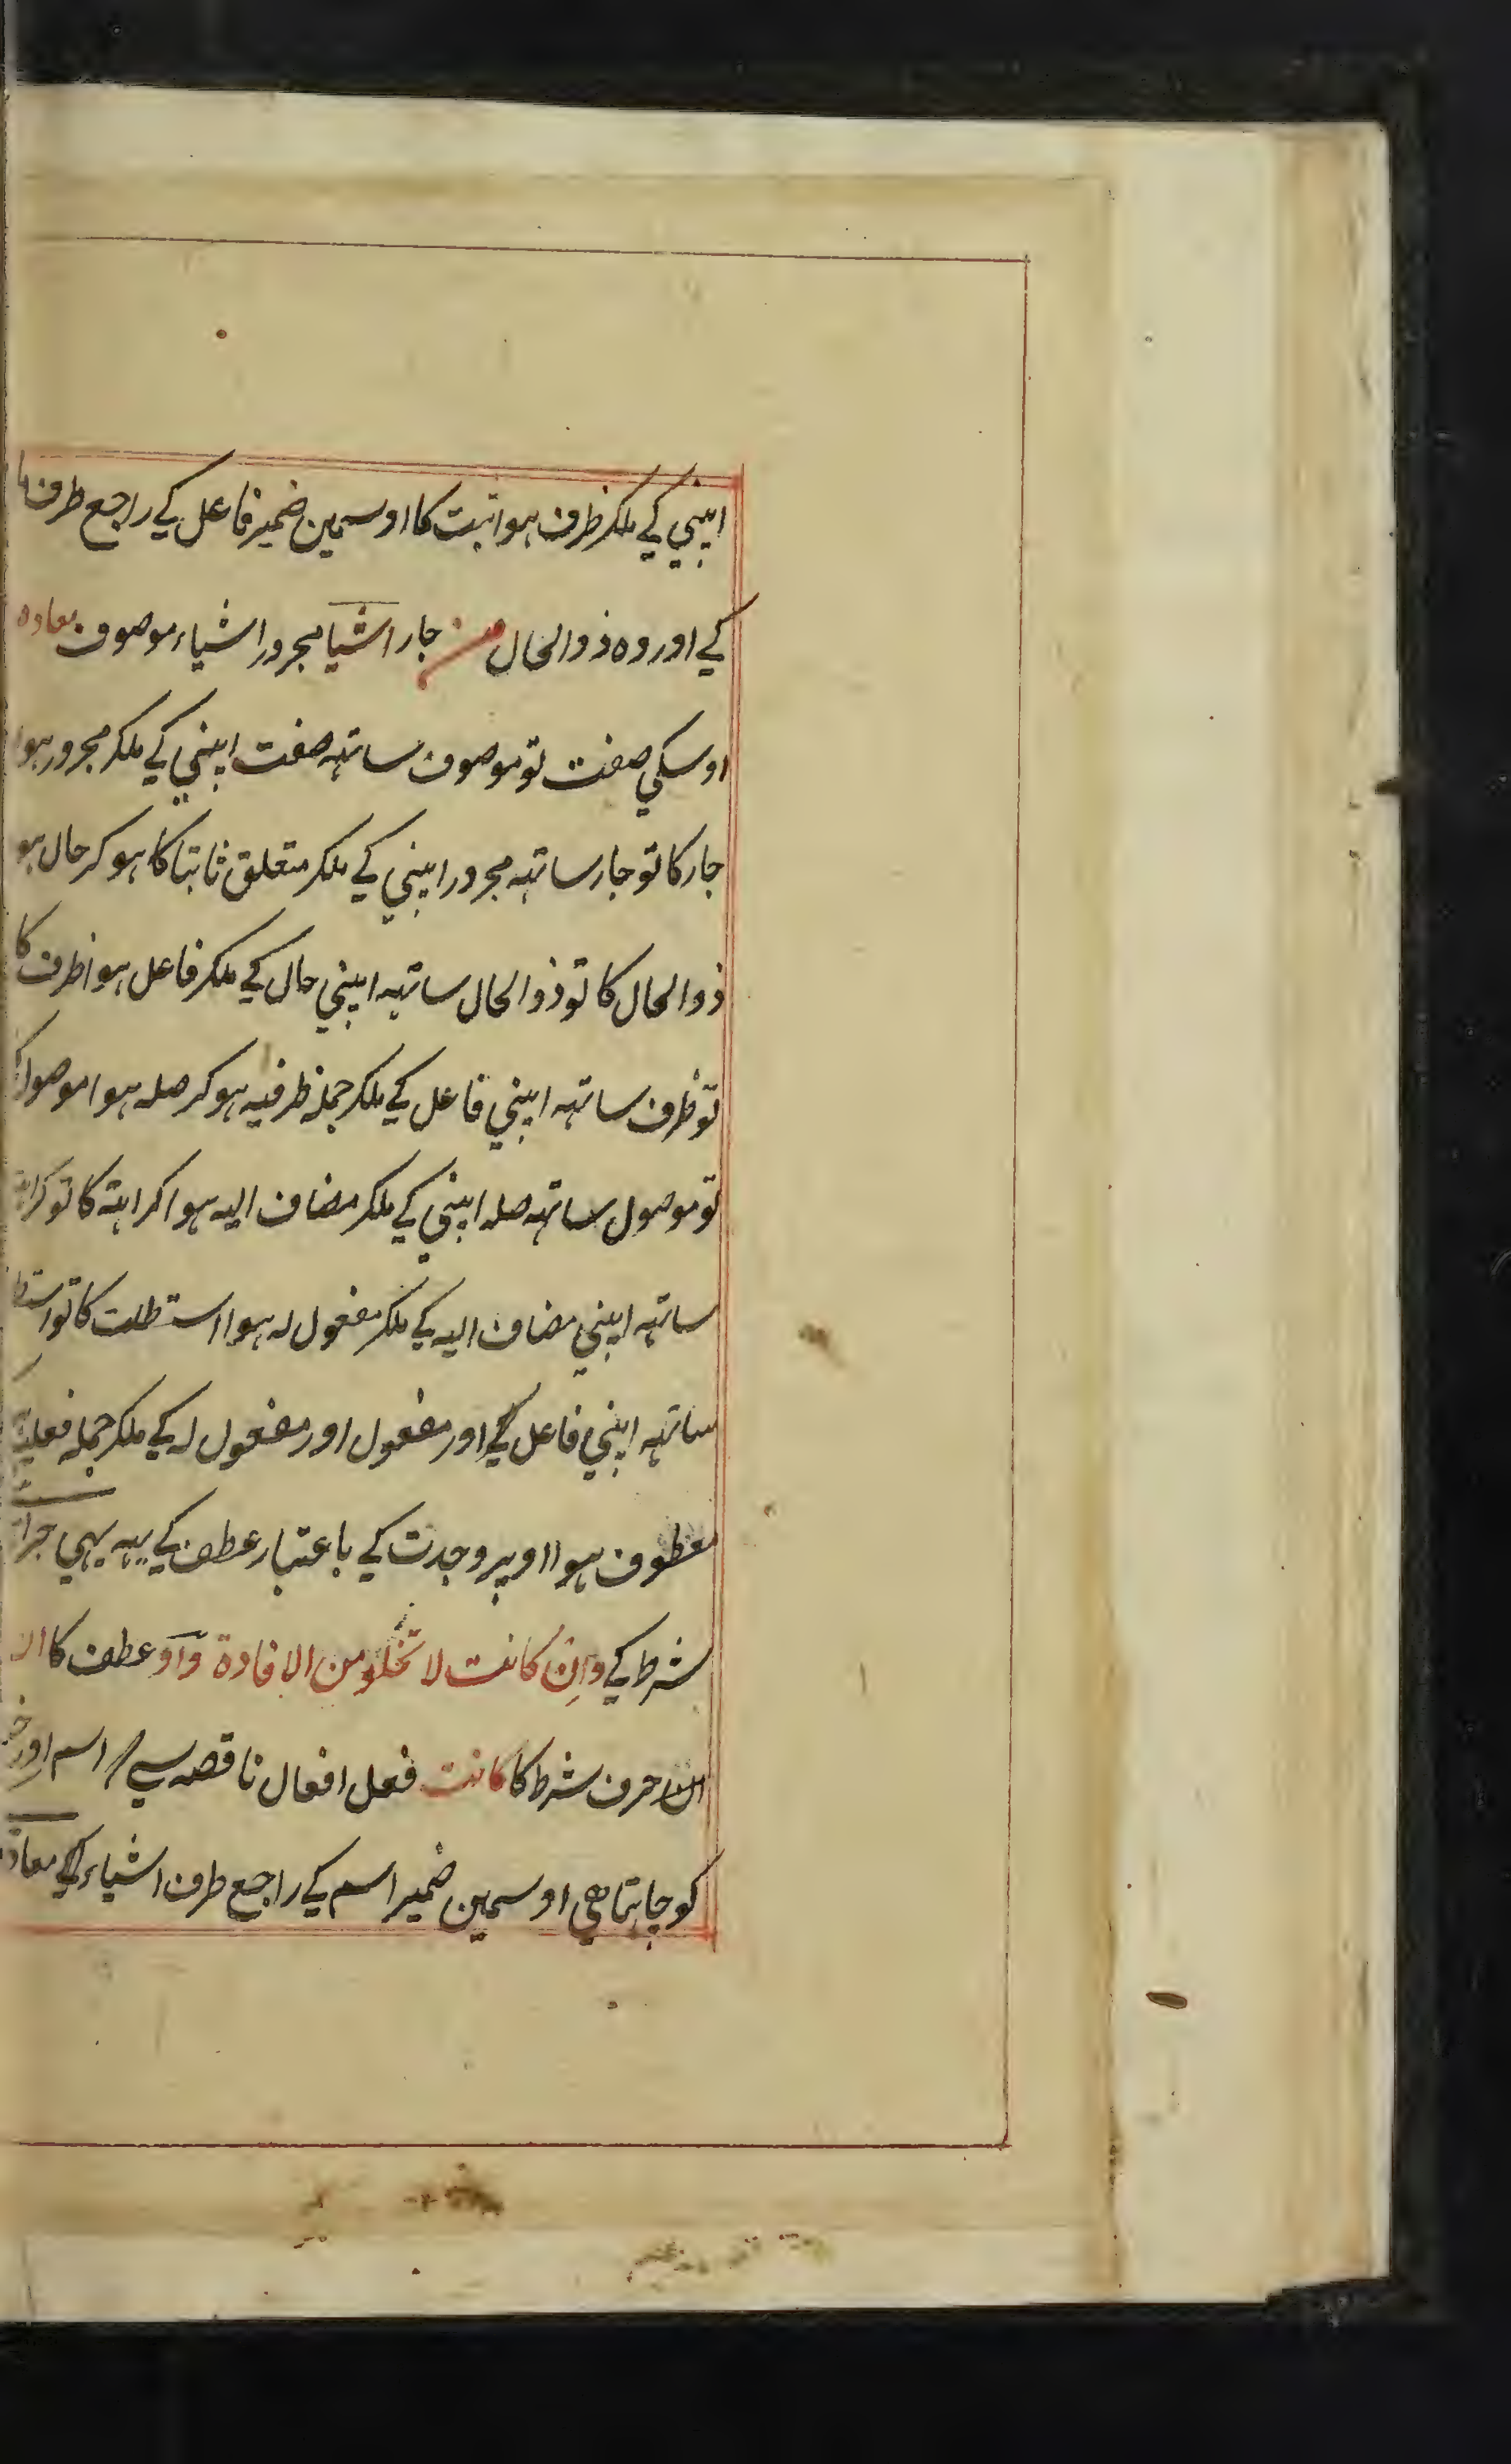 اپنی کے ملکر ظرف ہوا ثبت کا اوسمین ضمیر فاعل کے راجع طرف ما
کے اور وہ ذوالحال من جار اشیا مجرور اشیاء موصوف معادہ
اوسکی صفت تو موصوف ساتہہ صفت اپنی کے ملکر مجرور ہوا
جار کا تو جار ساتہہ مجرور اپنی کے ملکر متعلق ثابتا کا ہو کر حال ہو
ذوالحال کا تو ذوالحال ساتہہ اپنی حال کے ملکر فاعل ہوا ظرف کا
تو ظرف ساتہہ اپنی فاعل کے ملکر جملہ ظرفیہ ہو کر صلہ ہوا موصول
تو موصول ساتہہ صلہ اپنی کے ملکر مضاف الیہ ہوا کراہتہ کا تو
ساتہہ اپنی مضاف الیہ کے ملکر مفعول لہ ہوا استطلت کا تو
ساتہہ اپنی فاعل کے اور مفعول اور مفعول لہ کے ملکر جملہ فعلیہ
معطوف ہوا اوپر وجدت کے باعتبار عطف کے یہہ بہی جزا
شرط کے وَاِنْ کَانت لا تخلو من الافادة واو عطف کا ان
ان حرف شرط کا کانت فعل افعال ناقصہ سے اسم اور خبر
کو چاہتا ھی اوسمین ضمیر اسم کے راجع طرف اشیاء کے معادہ